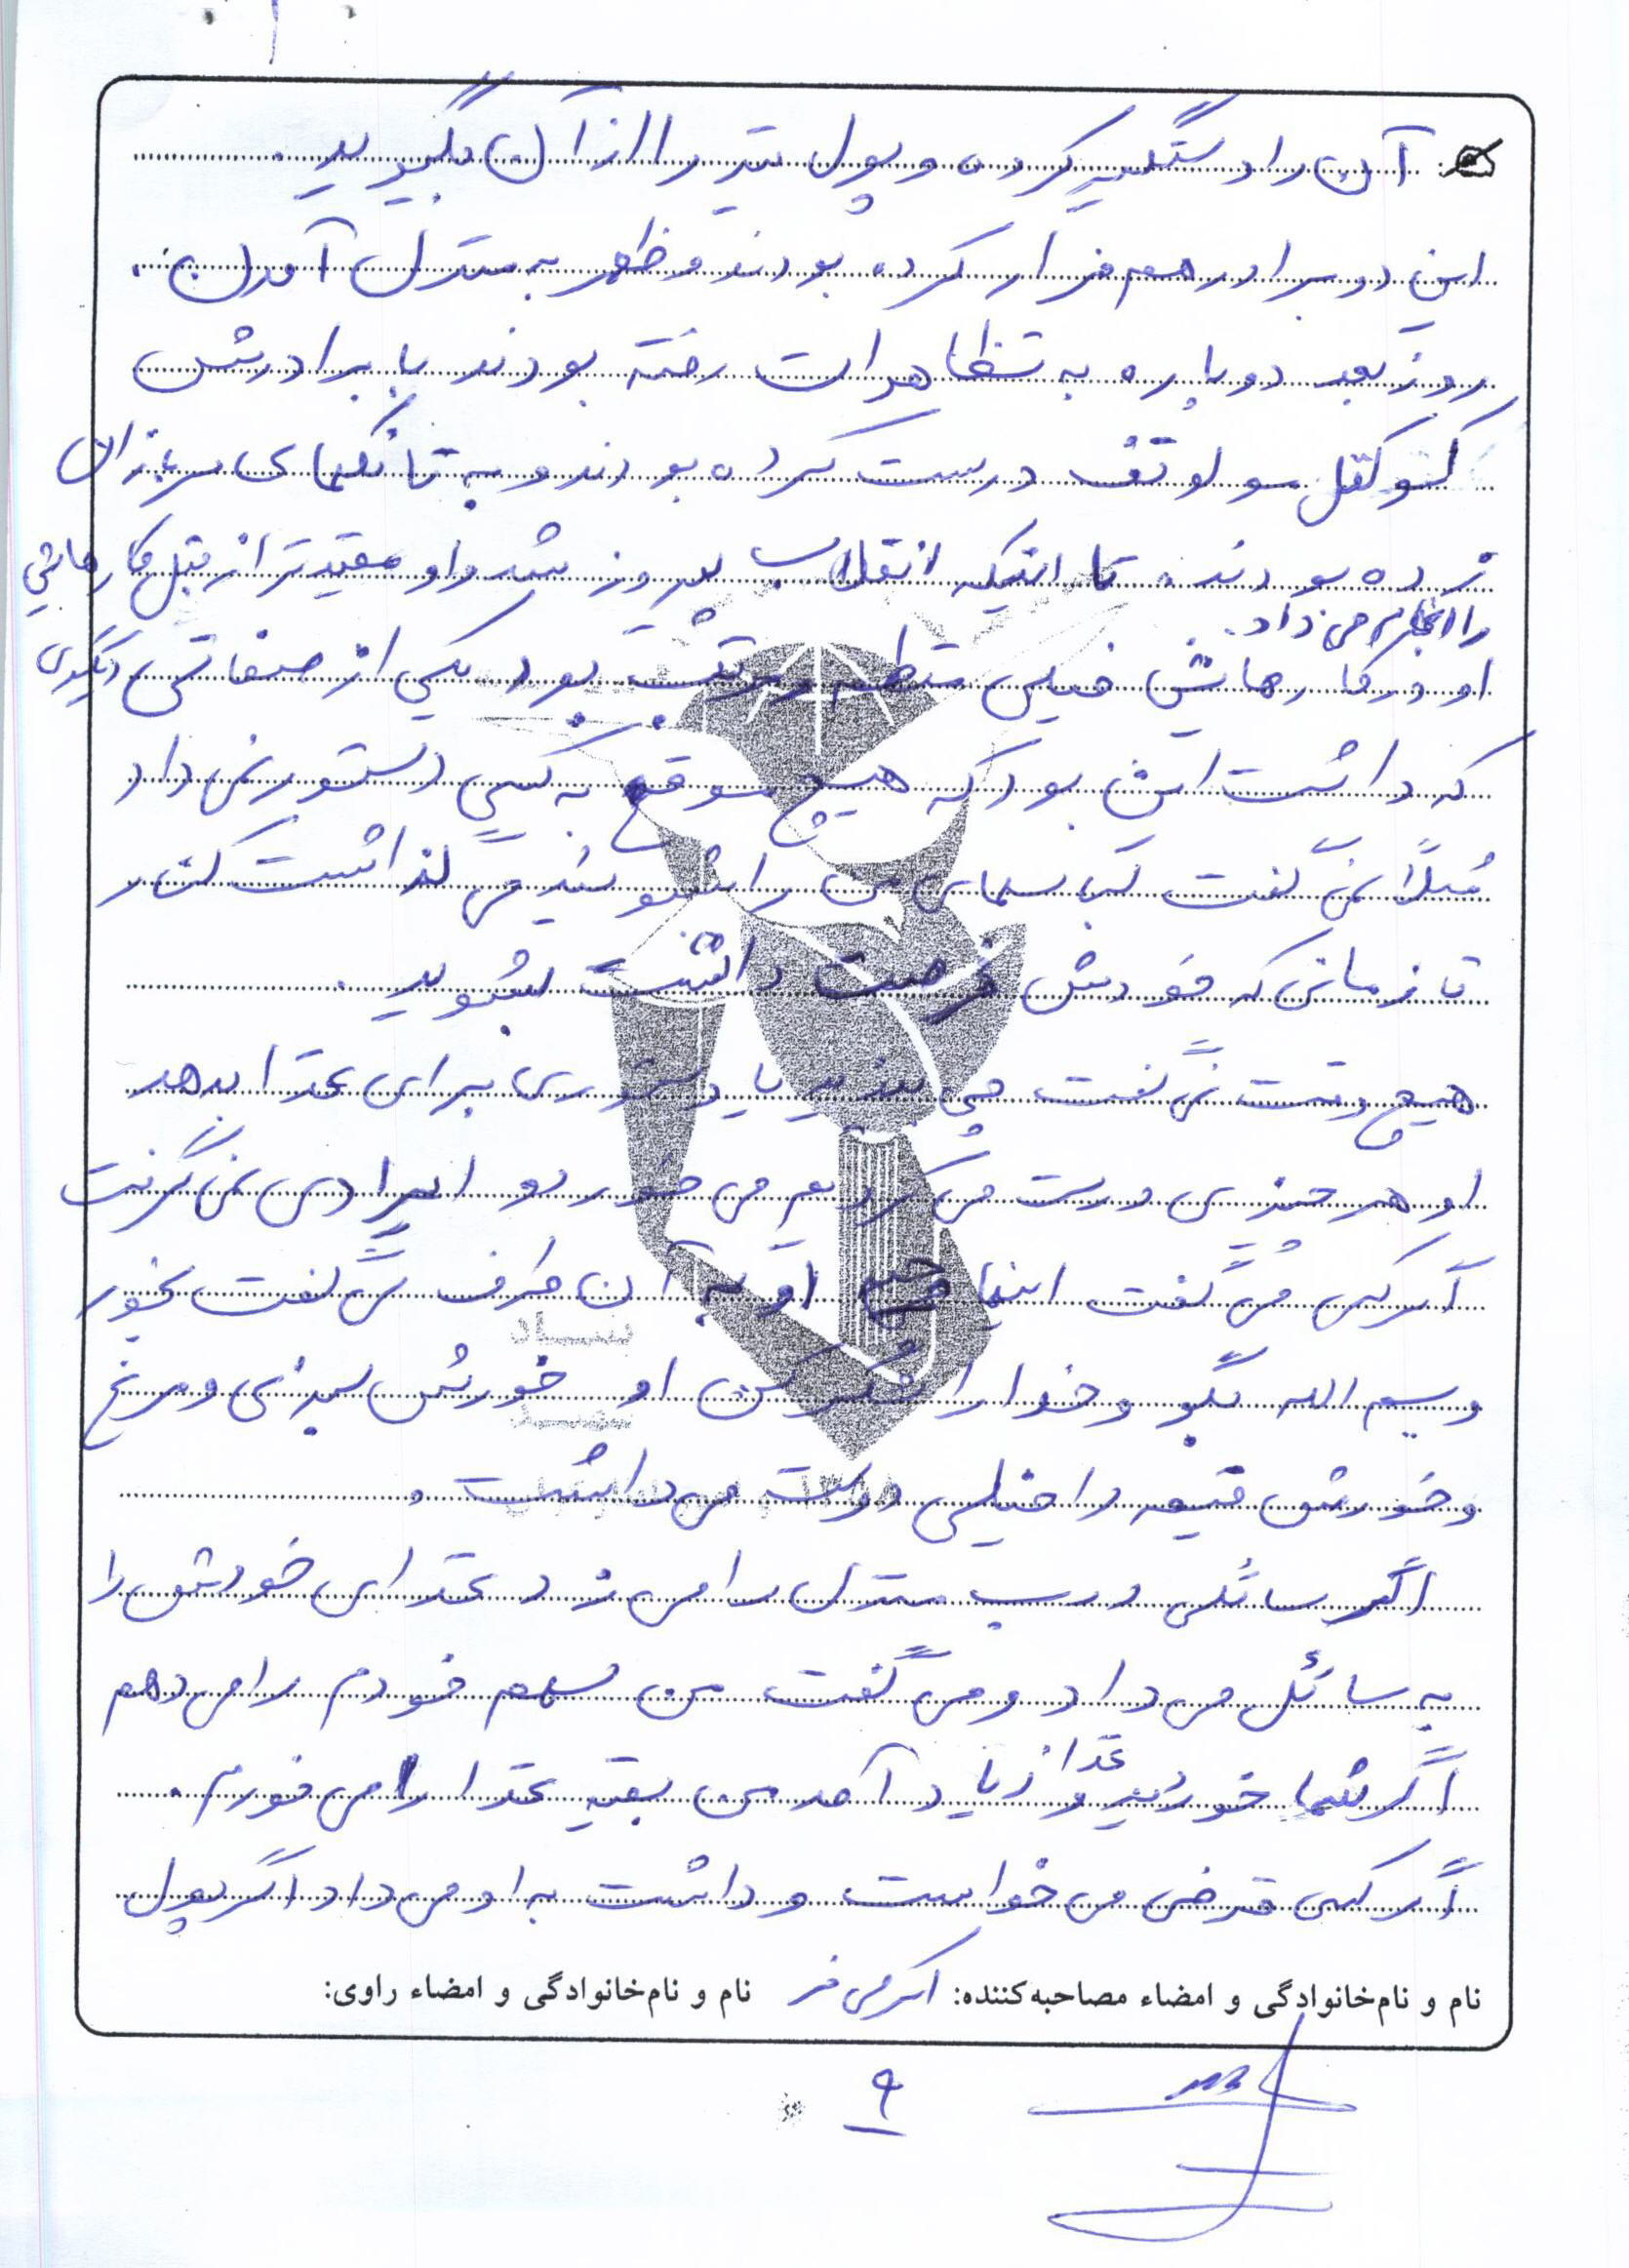 آن را دستگیر کرده و پول تیر را از آن بگیرید.
این دو برادر هم فرار کرده بودند و ظهر به منزل آمدن.
روز بعد دوباره به تظاهرات رفته بودند با برادرش
کوکتل مولوتف درست کرده بودند و به تانکهای سربازان
زده بودند. تا اینکه انقلاب پیروز شد و او مقیدتر از قبل کارهایش
را انجام می داد.
او در کارهایش خیلی منظم و مرتب بود یکی از صفاتی دیگری
که داشت این بود که هیچ موقع به کسی دستور نمی داد
مثلاً نمی گفت لباسهای من را بشوئید می گذاشت کنار
تا زمانی که خودش فرصت داشت بشوید.
هیچ وقت نمی گفت چی بپزید یا دستوری برای غذا بدهد
او هر چیزی درست می کردیم می خورد و ایرادی نمی گرفت
اگر کسی می گفت اینها چیه او به آن طرف می گفت بخور
و بسم الله بگو و خدا را شکر کن او خورش سبزی و مرغ
و خورش قیمه را خیلی دوست می داشت.
اگر سائلی درب منزل را می زد غذای خودش را
به سائل می داد و می گفت من سهم خودم را می دهم
اگر شما خوردید و غذا زیاد آمد من بقیه غذا را می خورم.
اگر کسی قرض می خواست و داشت به او می داد اگر پول
نام و نام‌خانوادگی و امضاء مصاحبه‌کننده: اکرمی فر نام و نام‌خانوادگی و امضاء راوی:
۹